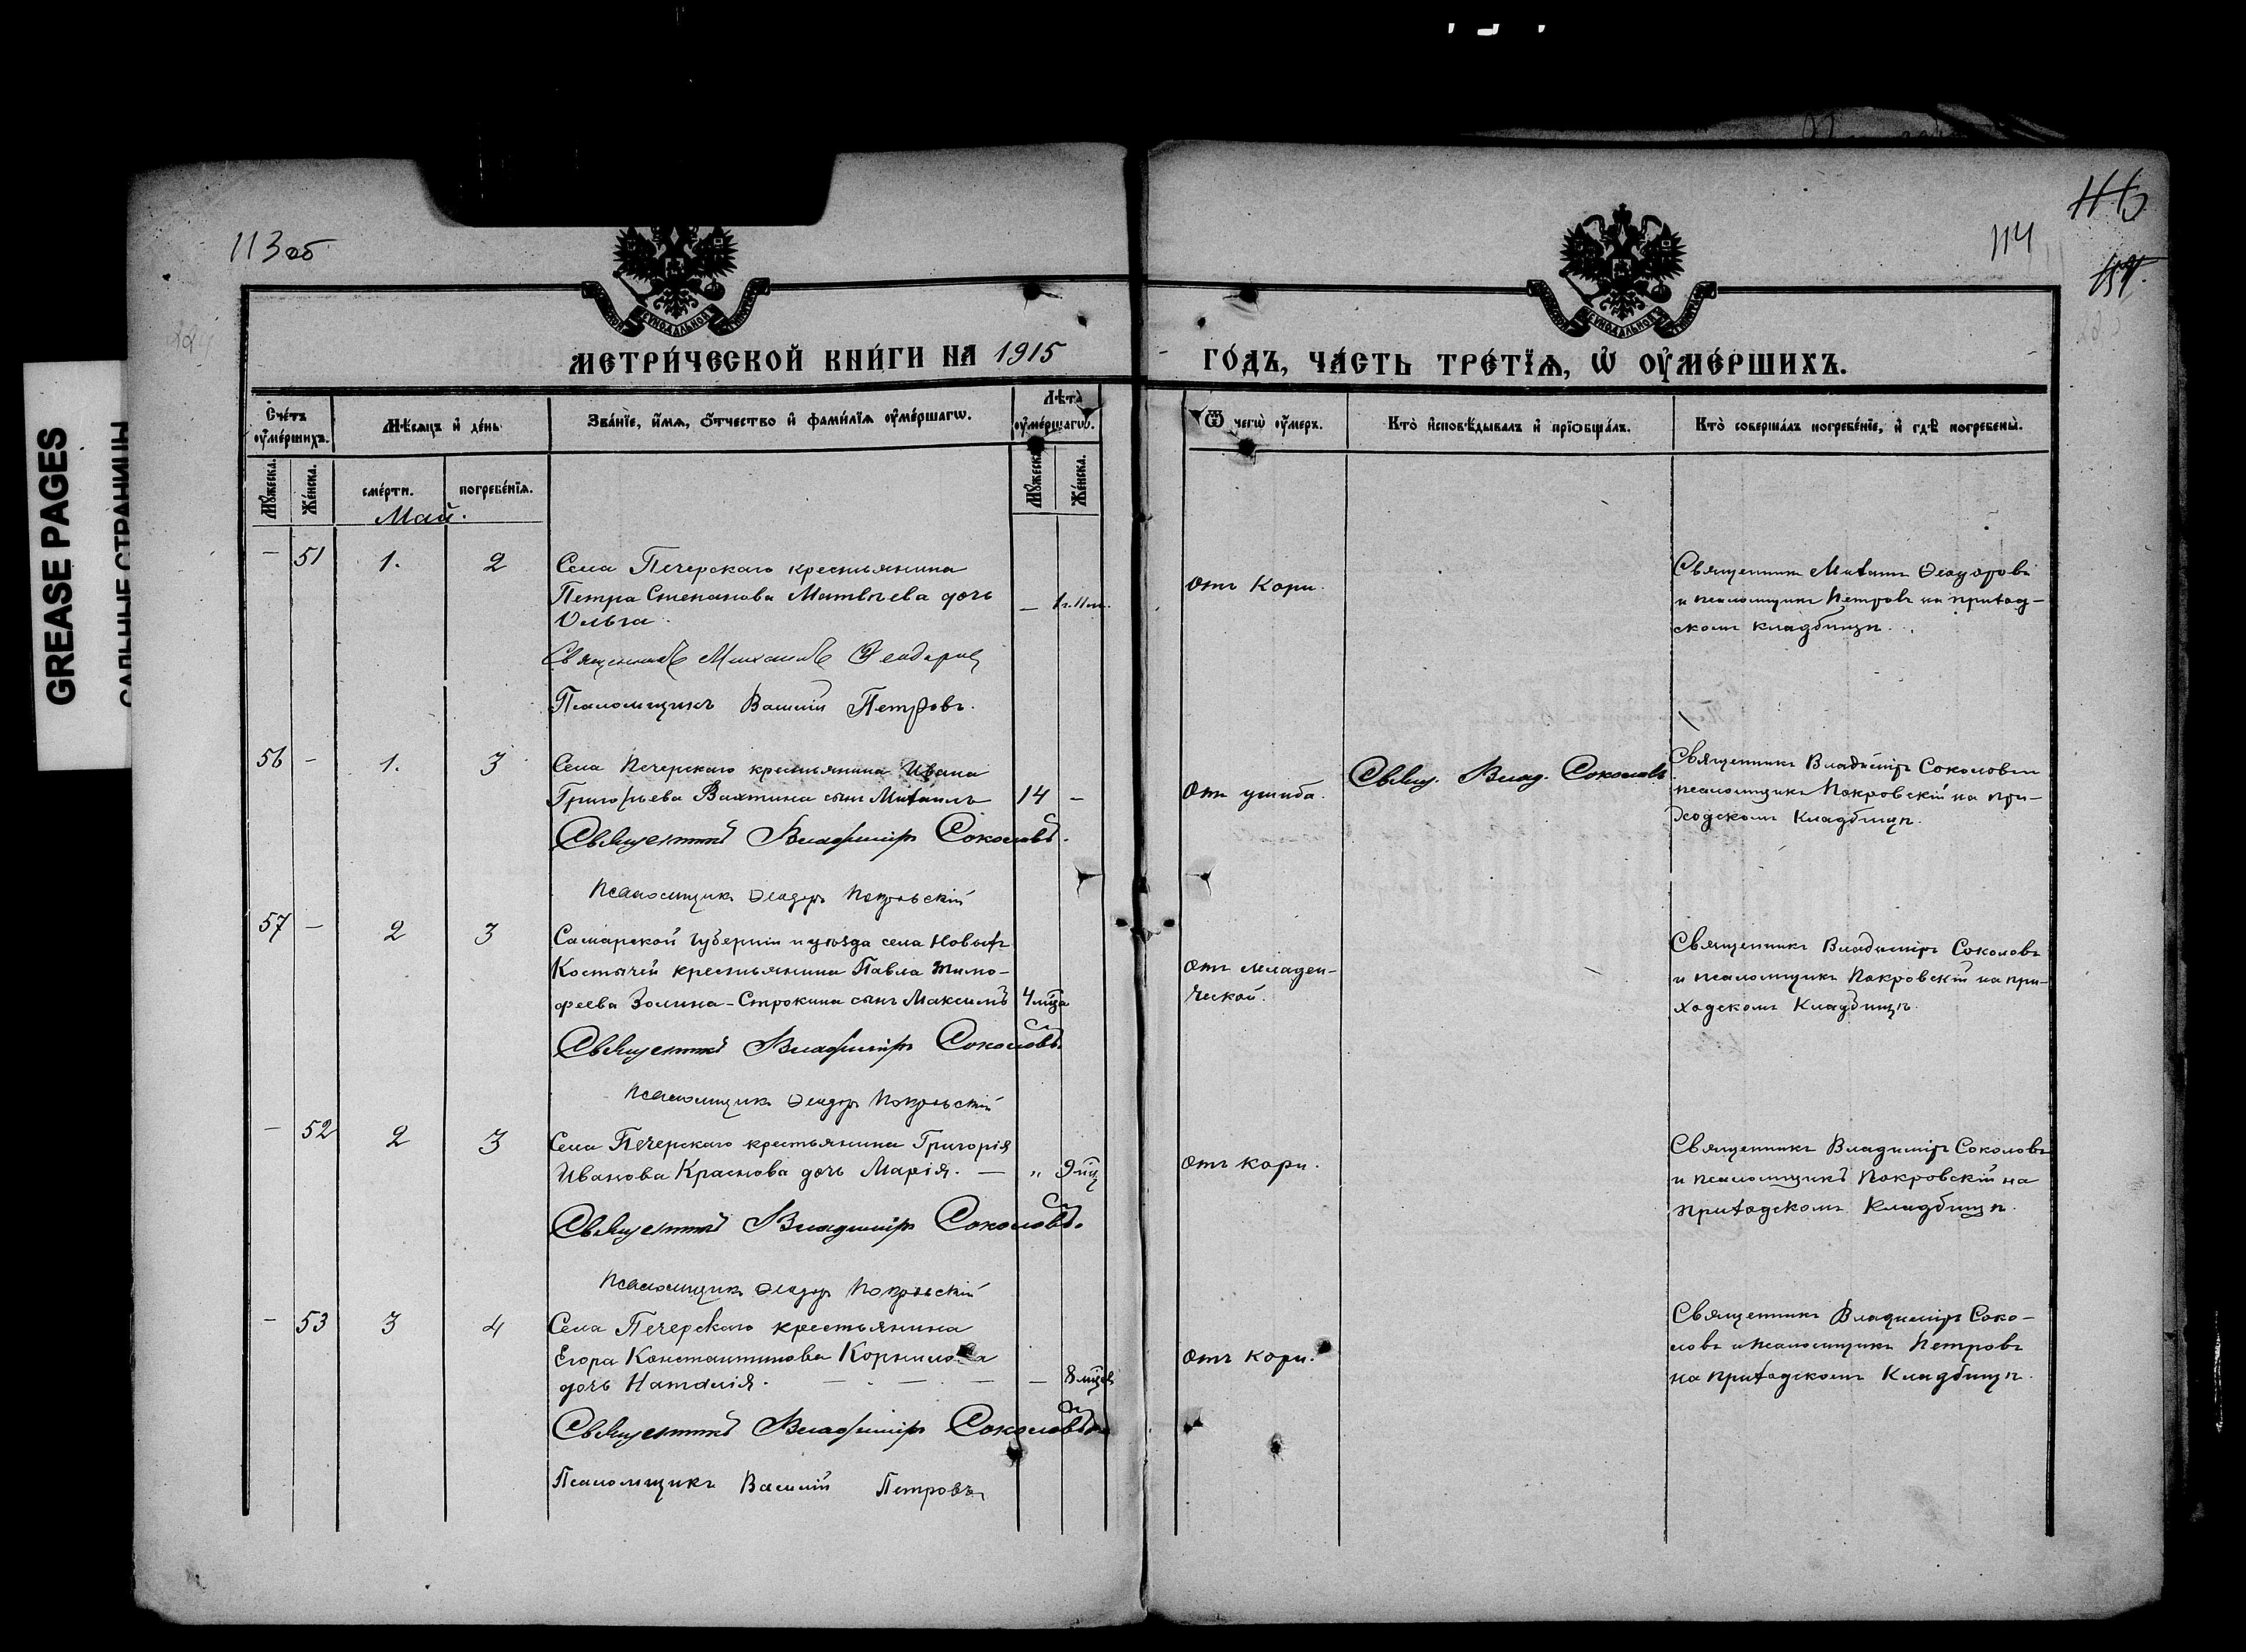 GREASE PAGES
САЛЬНЫЕ СТРАНИЦЫ
113 об
114
МЕТРИЧЕСКОЙ КНИГИ НА 1915
ГОДЪ, ЧАСТЬ ТРЕТІЯ, Ѡ ОУМЕРШИХЪ.
Счетъ оумершихъ.
Мѣсяцъ и день
Званіе, имя, отчество и фамилія оумершагѡ.
Лѣта оумершагѡ.
Ѿ чегѡ оумеръ.
Кто исповѣдывалъ и пріобщалъ.
Кто совершалъ погребеніе, и гдѣ погребены.
Мужеска.
Женска.
смерти.
погребенія.
Мужеска.
Женска.
Май.
- 51 1. 2
Села Печерскаго крестьянина
Петра Степанова Матвѣева дочь
Ольга.
— 1 г. 11 м.
Отъ Кори.
Священникъ Михаилъ Ѳеодоровъ
и псаломщикъ Петровъ на приход-
скомъ кладбищѣ.
Священникъ Михаилъ Ѳеодоровъ
Псаломщикъ Василій Петровъ.
56 - 1. 3
Села Печерскаго крестьянина Ивана
Григорьева Вахтина сынъ Михаилъ
14 —
Отъ ушиба.
Свящ. Влад. Соколовъ
Священникъ Владиміръ Соколовъ и
псаломщикъ Покровскій на при-
ходскомъ Кладбищѣ.
Священникъ Владиміръ Соколовъ.
Псаломщикъ Ѳеодоръ Покровскій
57 - 2 3
Самарской губерніи и уѣзда села Новыхъ
Костычей крестьянина Павла Тимо-
феева Золина-Строкина сынъ Максимъ
4 м̃ца
Отъ младен-
ческой.
Священникъ Владиміръ Соколовъ
и псаломщикъ Покровскій на при-
ходскомъ Кладбищѣ.
Священникъ Владиміръ Соколовъ.
Псаломщикъ Ѳеодоръ Покровскій
- 52 2 3
Села Печерскаго крестьянина Григорія
Иванова Краснова дочь Марія. —
„ 9 м̃ц
Отъ кори.
Священникъ Владиміръ Соколовъ
и псаломщикъ Покровскій на
приходскомъ Кладбищѣ.
Священникъ Владиміръ Соколовъ.
Псаломщикъ Ѳеодоръ Покровскій
- 53 3 4
Села Печерскаго крестьянина
Егора Константинова Корнилова
дочь Наталія. — — — —
— 8 м̃цев
Отъ кори.
Священникъ Владиміръ Соко-
ловъ и псаломщикъ Петровъ
на приходскомъ Кладбищѣ.
Священникъ Владиміръ Соколовъ
Псаломщикъ Василій Петровъ